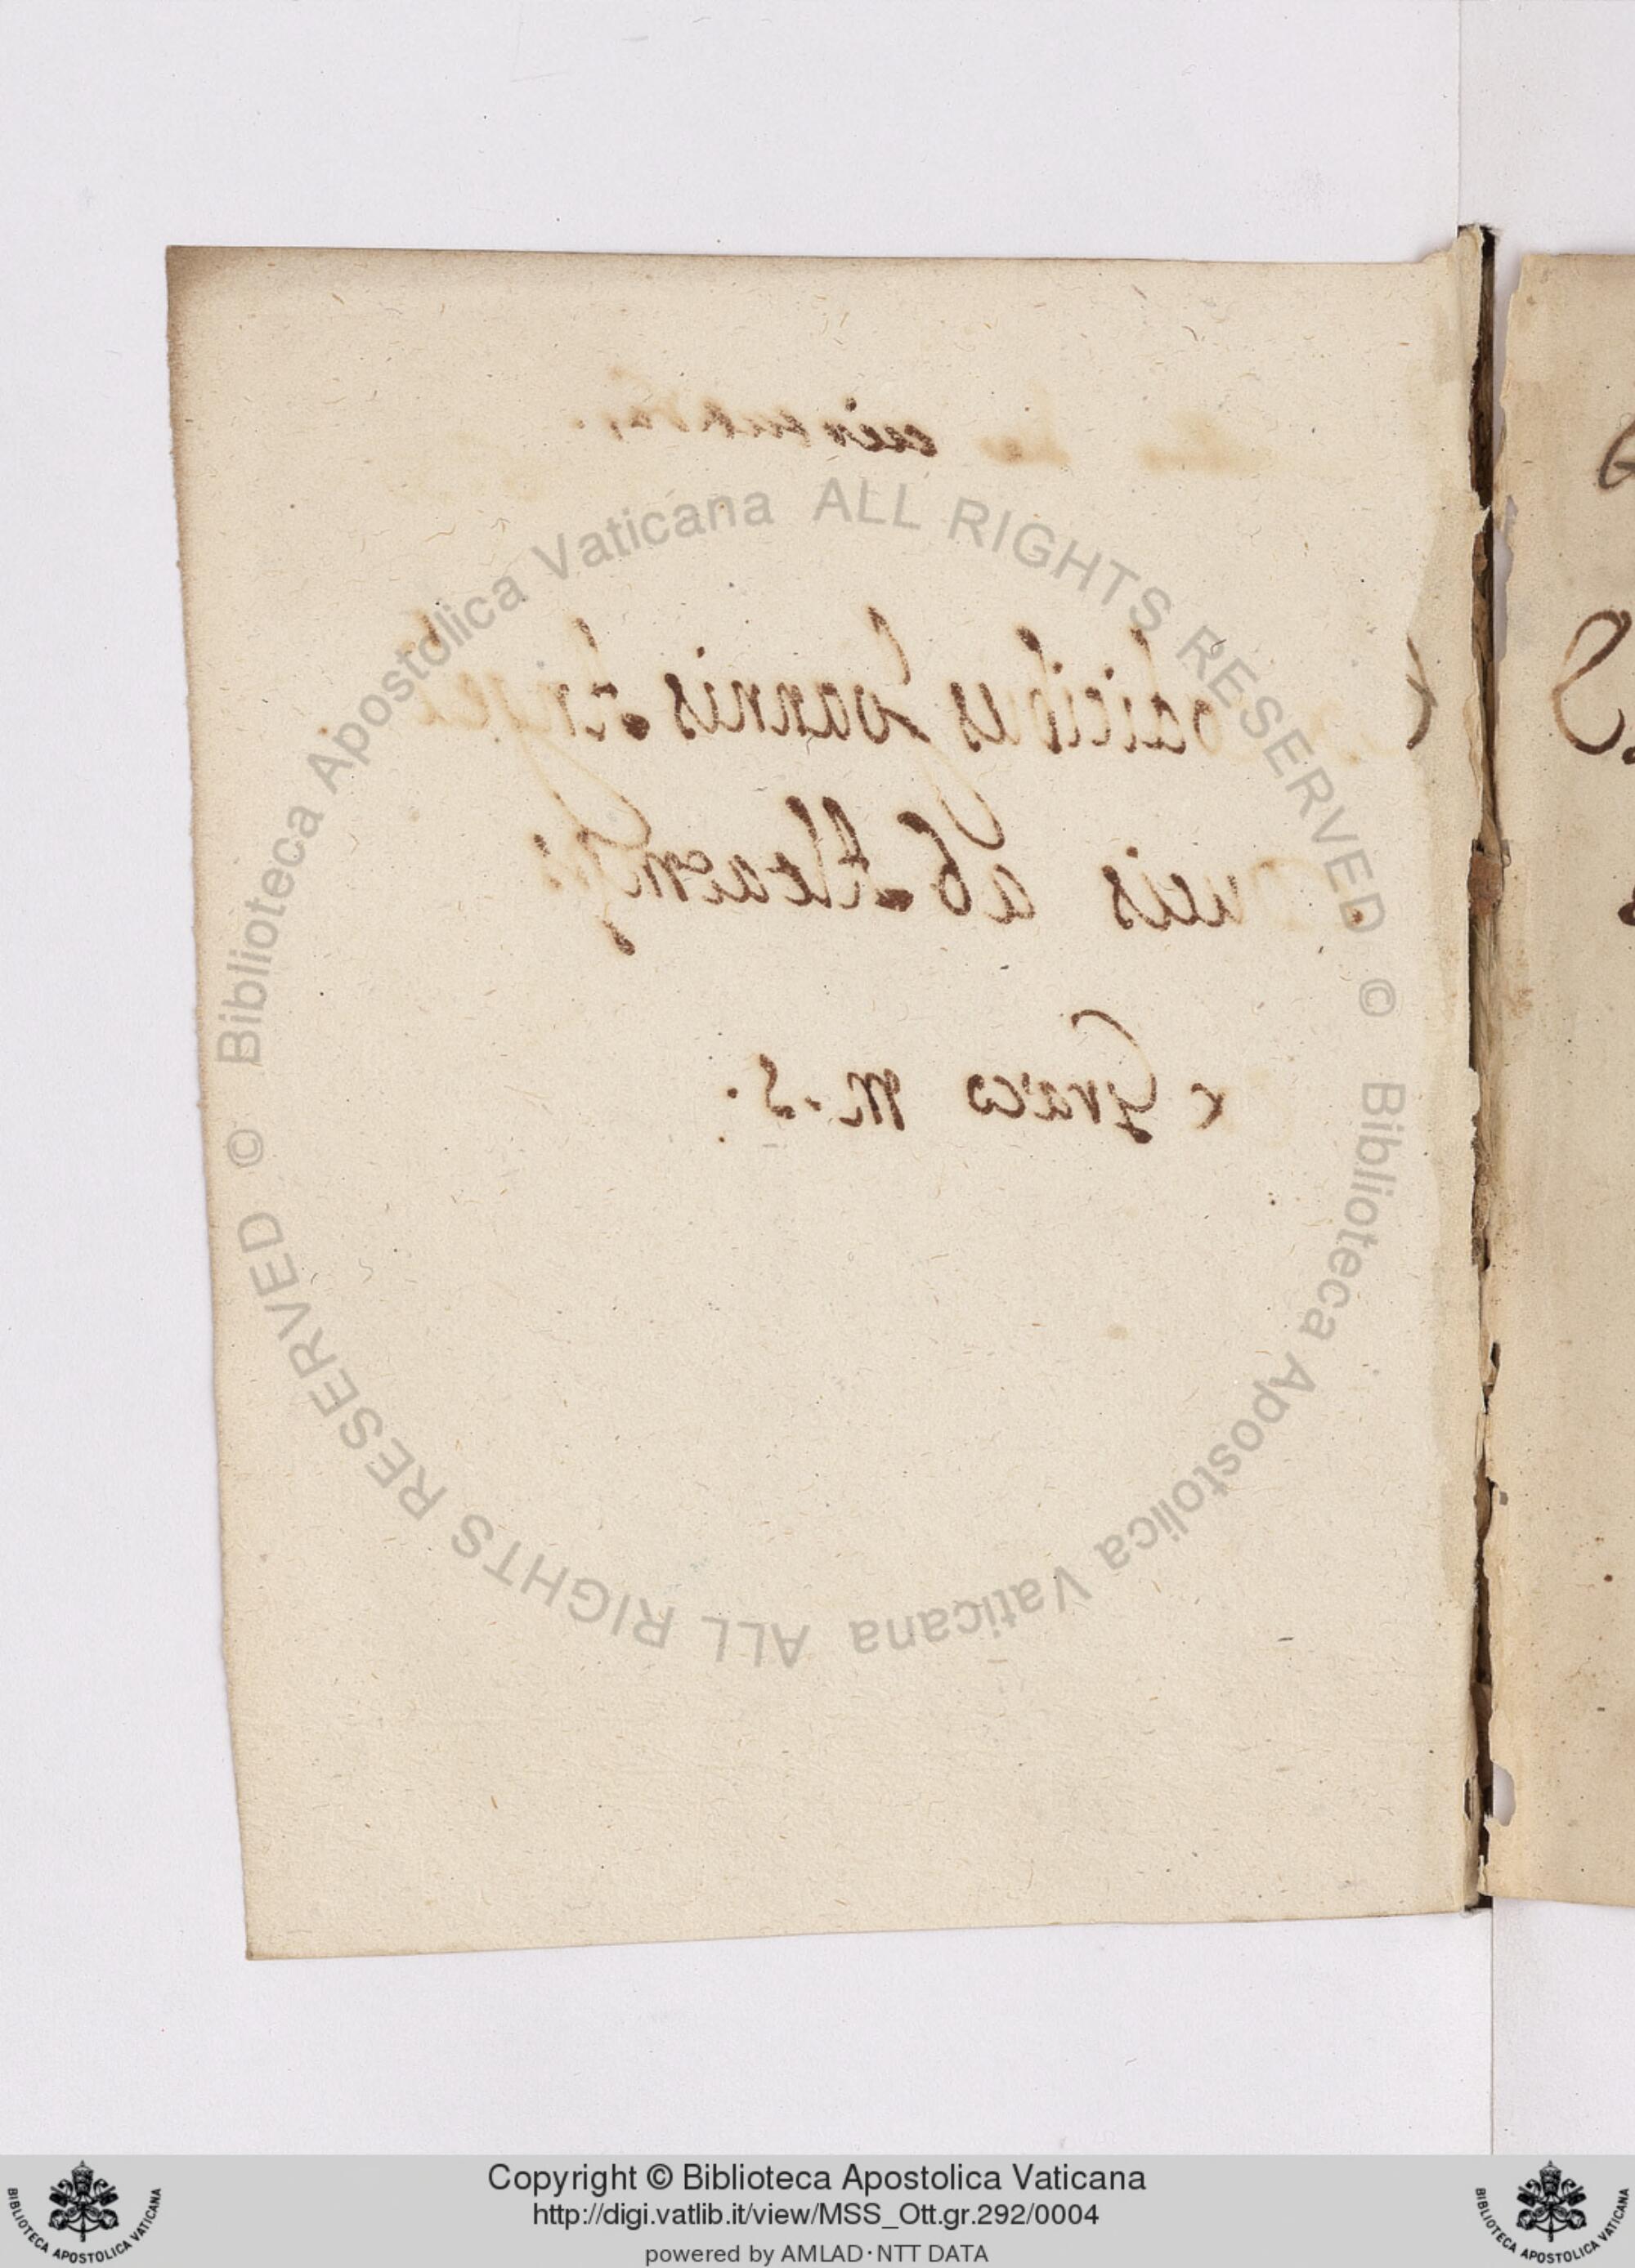 odicibus Joannis Angeli
ucis ab Altaemps
Græco M.S.
Biblioteca Apostolica Vaticana ALL RIGHTS RESERVED ©
Biblioteca Apostolica Vaticana ALL RIGHTS RESERVED ©
Copyright © Biblioteca Apostolica Vaticana
http://digi.vatlib.it/view/MSS_Ott.gr.292/0004
powered by AMLAD·NTT DATA
BIBLIOTECA APOSTOLICA VATICANA
BIBLIOTECA APOSTOLICA VATICANA